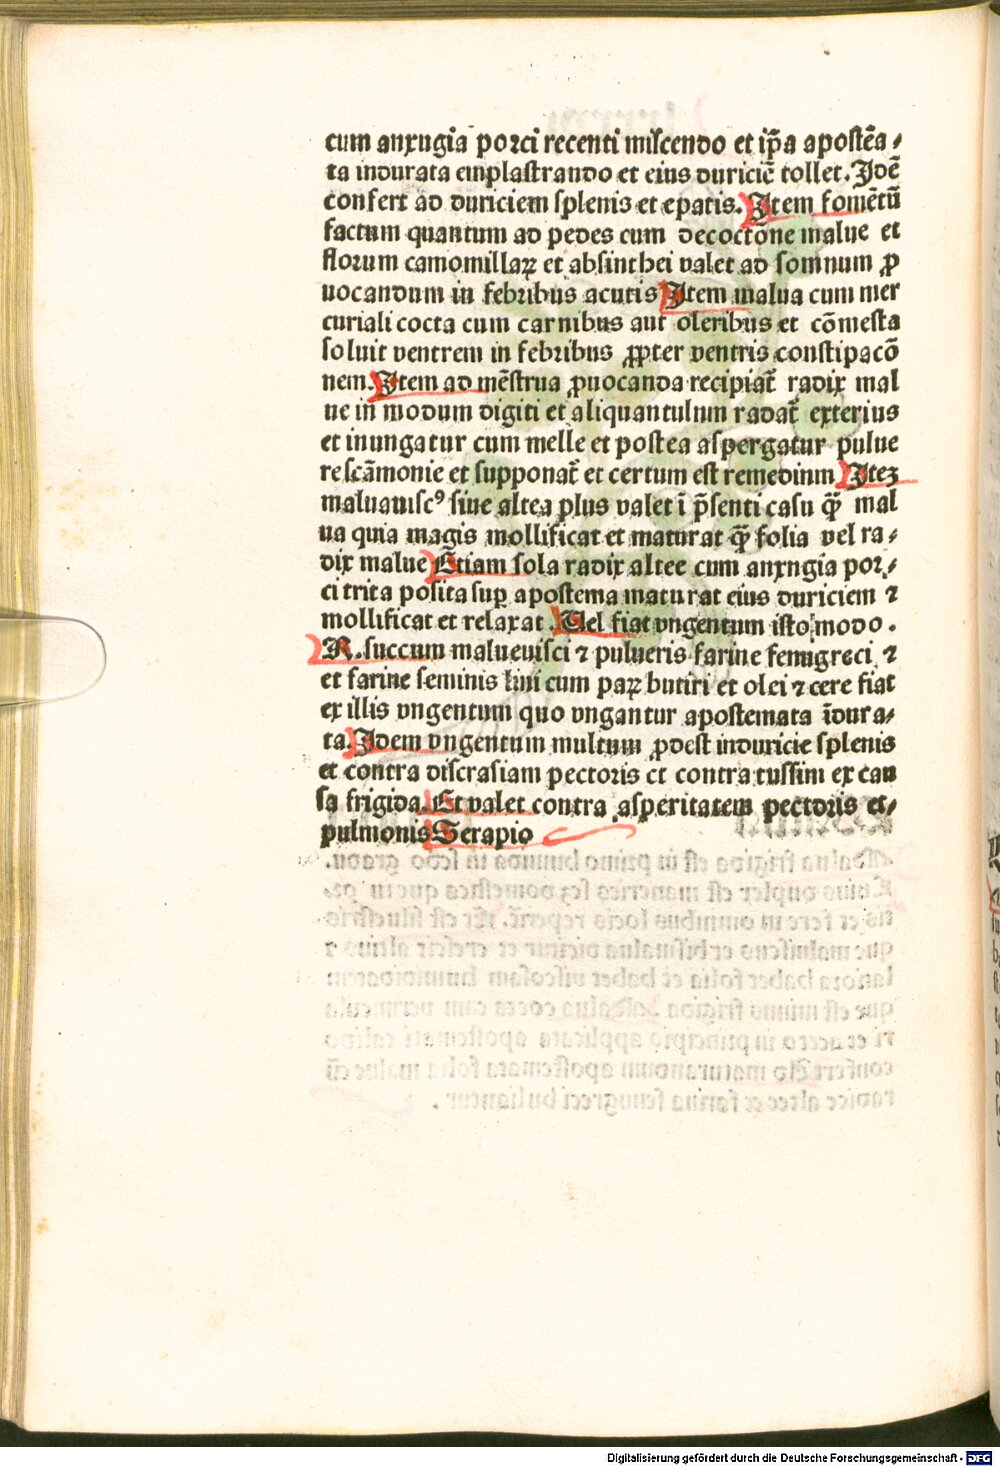 cum anxugia porci recenti miscendo et ip̄a apostēa⸗
ta indurata emplastrando et eius duriciē tollet. Idē
confert ad duriciem splenis et epatis. Item fomētū
factum quantum ad pedes cum decoctone malue et
florum camomillaꝝ et absinthei valet ad somnum ꝓ
uocandum in febribus acutis Item malua cum mer
curiali cocta cum carnibus aut oleribus et cōmesta
soluit ventrem in febribus ꝓpter ventris constipacō
nem. Item ad mēstrua ꝓuocanda recipiat̄ radix mal
ue in modum digiti et aliquantulum radat̄ exterius
et inungatur cum melle et postea aspergatur pulue
re scāmonie et supponat̄ et certum est remedium Itеꝫ
maluauiscꝰ siue altea plus valet ī p̄senti casu q̄ꝫ mal
ua quia magis mollificat et maturat q̄ꝫ folia vel ra⸗
dix malue Etiam sola radix altee cum anxngia por⸗
ci trita posita suꝑ apostema maturat eius duriciem ⁊
mollificat et relaxat. Uel fiat vngentum isto modo.
R. succum malueuisci ⁊ pulueris farine fenugreci ⁊
et farine seminis lini cum paꝝ butiri et olei ⁊ cere fiat
ex illis vngentum quo vngantur apostemata īdura⸗
ta. Idem vngentum multum ꝓdest induricie splenis
et contra discrasiam pectoris et contra tussim ex cau
sa frigida. Et valet contra asperitatem pectoris et⸗
pulmonis Serapio
Digitalisierung gefördert durch die Deutsche Forschungsgemeinschaft - DFG